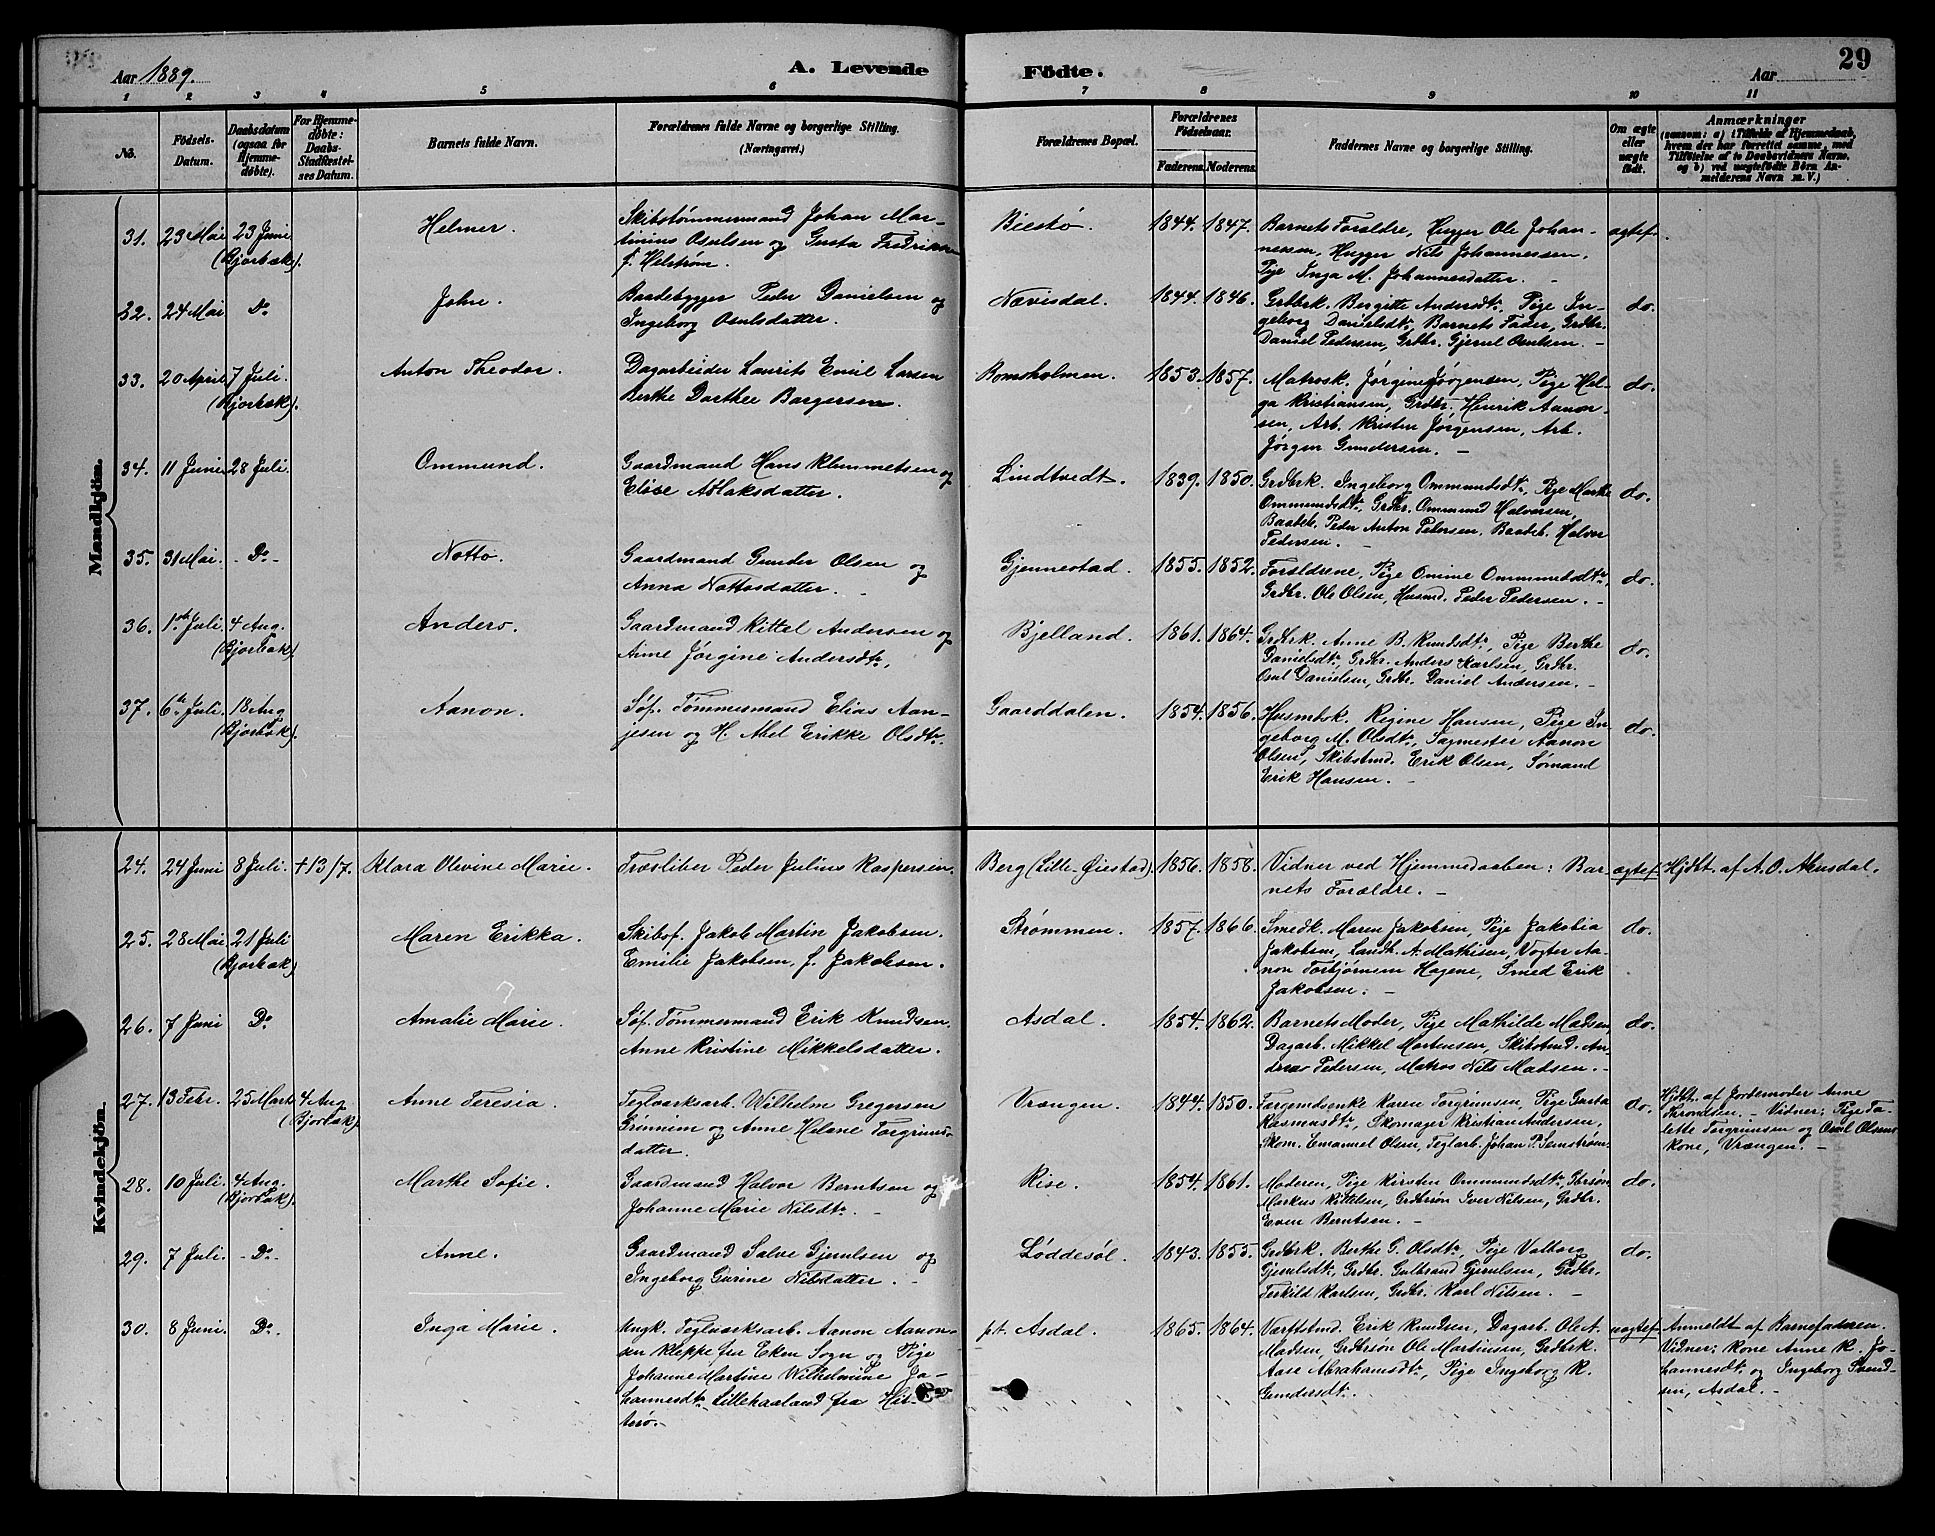 Aar 1889.
A. Levende Födte.
Aar
29
1 2 3 4 5 6 7 8 9 10 11
No.
Födsels-Datum.
Daabsdatum (ogsaa for Hjemme-døbte).
For Hjemme-døbte: Daabs-Stadfæstel-ses Datum.
Barnets fulde Navn.
Forældrenes fulde Navne og borgerlige Stilling. (Næringsvei.)
Forældrenes Bopæl.
Forældrenes Födselsaar.
Faderens. Moderens.
Faddernes Navne og borgerlige Stilling.
Om ægte eller uægte født.
Anmærkninger
(saasom: a) i Tilfælde af Hjemmedaab, hvem der har forrettet samme, med Tilföielse af to Daabsvidners Navne, og b) ved uægtefødte Börn Anmelderens Navn m. V.)
Mandkjön.
31. 23 Mai 23 Juni (Bjorbæk). Helmer. Skibstømmermand Johan Mar-
tinius Osulsen og Gusta Fredrikke
f. Helstrøm.
Biestø. 1844. 1847. Barnets Forældre, Hugger Ole Johan-
nessen, Hugger Nils Johannessen,
Pige Inga M. Johannesdatter. ægtef.
32. 24 Mai Do John. Baadebygger Peder Danielsen og
Ingeborg Osulsdatter.
Nævisdal. 1844. 1846. Grdbrk. Bergitte Andersdt., Pige In-
geborg Danielsdt., Barnets Fader, Grdbr.
Daniel Pedersen, Grdbr. Gjerul Osulsen. do.
33. 20 April 7 Juli. (Bjorbæk). Anton Theodor. Dagarbeider Laurits Emil Larsen
Berthe Dorthee Bargersen.
Bomsholmen. 1853. 1857. Matrosk. Jørgine Jørgensen, Pige Hel-
ga Kristiansen, Grdbr. Henrik Aanon-
sen, Arb. Kristen Jørgensen, Arb.
Jørgen Gundersen. do.
34. 11 Juni 28 Juli. Ommund. Gaardmand Hans Klemmetsen og
Elise Aslaksdatter.
Lindtvedt. 1839. 1850. Grdbrk. Ingeborg Ommundsdt., Pige Marthe
Ommundsdt., Grdbr. Ommund Halvorsen,
Baadeb. Peder Anton Pedersen, Baadeb. Halvor
Pedersen. do.
35. 31 Mai. Do Notto. Gaardmand Gunder Olsen og
Anna Nottosdatter.
Gjennestad. 1855. 1852. Forældrene, Pige Omine Ommundsdt.,
Grdbr. Ole Olsen, Husmd. Peder Pedersen. do.
36. 1ste Juli. 4 Aug. (Bjorbæk) Anders. Gaardmand Kittel Andersen og
Anne Jørgine Andersdt.,
Bjelland. 1861. 1864. Grdbrk. Anne B. Knudsdt., Pige Berthe
Danielsdt., Grdbr. Anders Karlsen, Grdbr.
Osul Danielsen, Grdbr. Daniel Andersen. do.
37. 6te Juli. 18 Aug. (Bjorbæk). Aanon. Søf. Tømmermand Elias Aan-
jesen og H. Abel Erikke Olsdt.
Gaarddalen. 1854. 1856. Husmdsk. Regine Hansen, Pige In-
geborg M. Olsdt., Sagmester Aanon
Olsen, Skibstmd. Erik Olsen, Sømand
Erik Hansen. do.
Kvindekjön.
24. 24 Juni 8 Juli. +13/7. Klara Olevine Marie. Træsliber Peder Julius Kaspersen.
Berg (Lille-Øiestad). 1856. 1858. Vidner ved Hjemmedaaben: Bar-
nets Forældre. ægtef. Hjdbt. af A. O. Aknsdal.
25. 28 Mai 21 Juli (Bjorbæk) Maren Erikka. Skibsf. Jakob Martin Jakobsen.
Emilie Jakobsen, f. Jakobsen.
Strømmen. 1857. 1866. Smedk. Maren Jakobsen, Pige Jakobia
Jakobsen, Landh. A. Mathisen, Vogter Aa-
non Torbjørnsen Hagene, Smed Erik
Jakobsen. do.
26. 7 Juni Do. Amalie Marie. Søf. Tømmermand Erik Knudsen.
Anne Kristine Mikkelsdatter.
Asdal. 1854. 1862. Barnets Moder, Pige Mathilde Madsen,
Dagarb. Mikkel Mortensen, Skibstmd. An-
dreas Pedersen, Matros Nils Madsen. do.
27. 13 Febr. 25 Marts 4 Aug (Bjorbæk). Anne Teresia. Teglværksarb. Wilhelm Gregersen
Grinnem og Anne Helene Torgrims-
datter.
Vrængen. 1844. 1850. Færgemdsenke Karen Torgrimsen, Pige Gusta
Rasmusdt., Skomager Kristian Andersen,
Skom. Emanuel Olsen, Teglarb. Johan P. Semstrøm. do.
Hjdbt. af Jordemoder Anne
Throndsen. - Vidner: Pige Ta-
lette Torgrimsen og Osul Olsens
kone, Vrængen. -
28. 10 Juli. 4 Aug. (Bjorbæk). Marthe Sofie. Gaardmand Halvor Berntsen og
Johanne Marie Nilsdt.
Rise. 1854. 1861. Moderen, Pige Kirsten Ommundsdt., Gbrsøn
Markus Kittelsen, Grdbrsøn Iver Nilsen, Grdbr.
Even Berntsen. do.
29. 7 Juli. Do Anne. Gaardmand Salve Gjerulsen og
Ingeborg Gurine Nilsdatter.
Løddesøl. 1843. 1855. Grdbrk. Berthe G. Olsdt., Pige Valborg
Gjerulsdt., Grdbr. Gulbrand Gjerulsen, Grdbr.
Terkild Karlsen, Grdbr. Karl Nilsen. do.
30. 8 Juni. Do. Inga Marie. Ungk. Teglværksarb. Aanon Aanon-
sen Kleppe fra Eken Sogn og Pige
Johanne Martine Wilhelmine Jo-
hannesdt. Lillehaaland fra Hit-
terø.
pt. Asdal. 1865. 1864. Værftstmd. Erik Knudsen, Dagarb. Ole A.
Madsen, Grdbrsøn Ole Martinsen, Grdbrk.
Aase Abrahamsdt., Pige Ingeborg K.
Gundersdt. uægtef. Anmeldt af Barnefaderen.
Vidner: kone Anne K. Jo-
hannesdt. og Ingeborg Svend-
sen, Asdal.